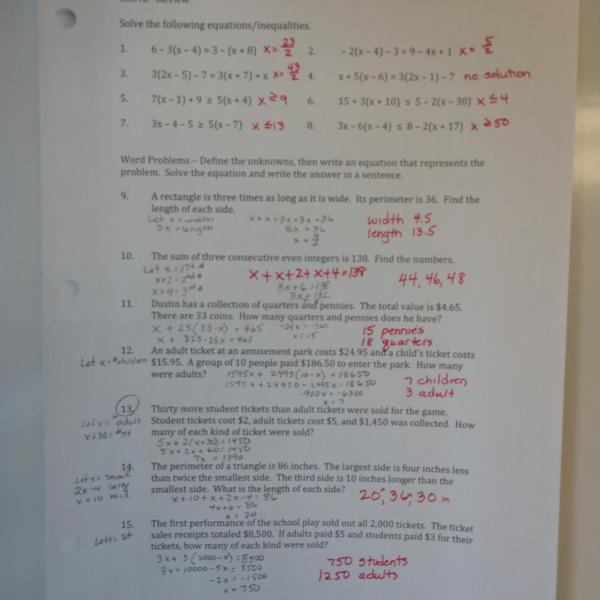 Review
Solve the following equations/inequalities.
1. 6 – 3(x – 4) = 3 – (x + 8) x = 23/2 2. – 2(x – 4) – 3 = 9 – 4x + 1 x = 5/2
3. 3(2x – 5) – 7 = 3(x + 7) + x x = 43/2 4. x + 5(x – 6) = 3(2x – 1) – 7 no solution
5. 7(x – 1) + 9 ≥ 5(x + 4) x ≥ 9 6. 15 + 3(x + 10) ≤ 5 – 2(x – 30) x ≤ 4
7. 3x – 4 – 5 ≥ 5(x – 7) x ≤ 13 8. 3x – 6(x – 4) ≤ 8 – 2(x + 17) x ≥ 50
Word Problems – Define the unknowns, then write an equation that represents the
problem. Solve the equation and write the answer in a sentence.
9. A rectangle is three times as long as it is wide. Its perimeter is 36. Find the
length of each side.
Let x = width x + x + 3x + 3x = 36 width 4.5
3x = length 8x = 36 length 13.5
x = 9/2
10. The sum of three consecutive even integers is 138. Find the numbers.
Let x = 1st # x + x + 2 + x + 4 = 138 44, 46, 48
x + 2 = 2nd # 3x + 6 = 138
x + 4 = 3rd 3x = 132
11. Dustin has a collection of quarters and pennies. The total value is $4.65.
There are 33 coins. How many quarters and pennies does he have?
x + 25(33 - x) = 465 -24x = -360 15 pennies
x + 825 - 25x = 465 x = 15 18 quarters
12. An adult ticket at an amusement park costs $24.95 and a child's ticket costs
Let x = #children $15.95. A group of 10 people paid $186.50 to enter the park. How many
were adults? 1595x + 2495(10 - x) = 18650 7 children
1595x + 24950 - 2495x = 18650 3 adult
-900x = -6300
x = 7
13. Thirty more student tickets than adult tickets were sold for the game.
Let x = adult Student tickets cost $2, adult tickets cost $5, and $1,450 was collected. How
x + 30 = #st many of each kind of ticket were sold?
5x + 2(x + 30) = 1450
5x + 2x + 60 = 1450
7x = 1390
14. The perimeter of a triangle is 86 inches. The largest side is four inches less
Let x = small than twice the smallest side. The third side is 10 inches longer than the
2x - 4 larg smallest side. What is the length of each side?
x + 10 mid x + 10 + x + 2x - 4 = 86 20", 36", 30 in
4x + 6 = 86
x = 20
15. The first performance of the school play sold out all 2,000 tickets. The ticket
Let x = st sales receipts totaled $8,500. If adults paid $5 and students paid $3 for their
tickets, how many of each kind were sold?
3x + 5(2000 - x) = 8500 750 students
3x + 10000 - 5x = 8500 1250 adults
-2x = -1500
x = 750